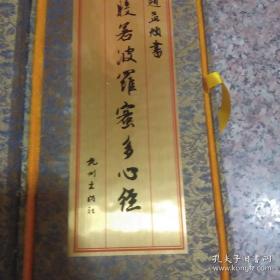 赵孟頫书
般若波罗蜜多心经
九州出版社
孔夫子旧书网